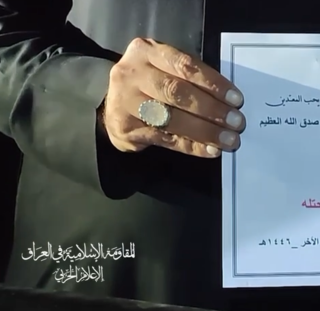 يحب المعتدين
صدق الله العظيم
حتله
الآخر _١٤٤٦هـ
المقاومة الإسلامية في العراق
الإعلام الحربي